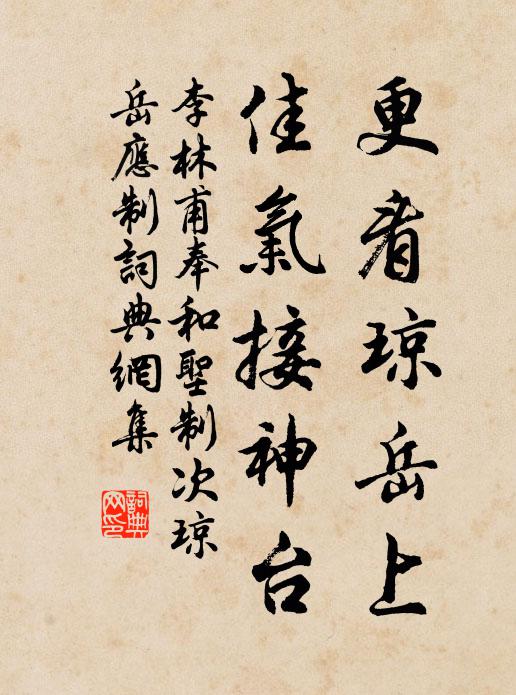 更看琼岳上
佳氣接神台
李林甫奉和聖制次琼
岳應制詞典網集
詞典
网印